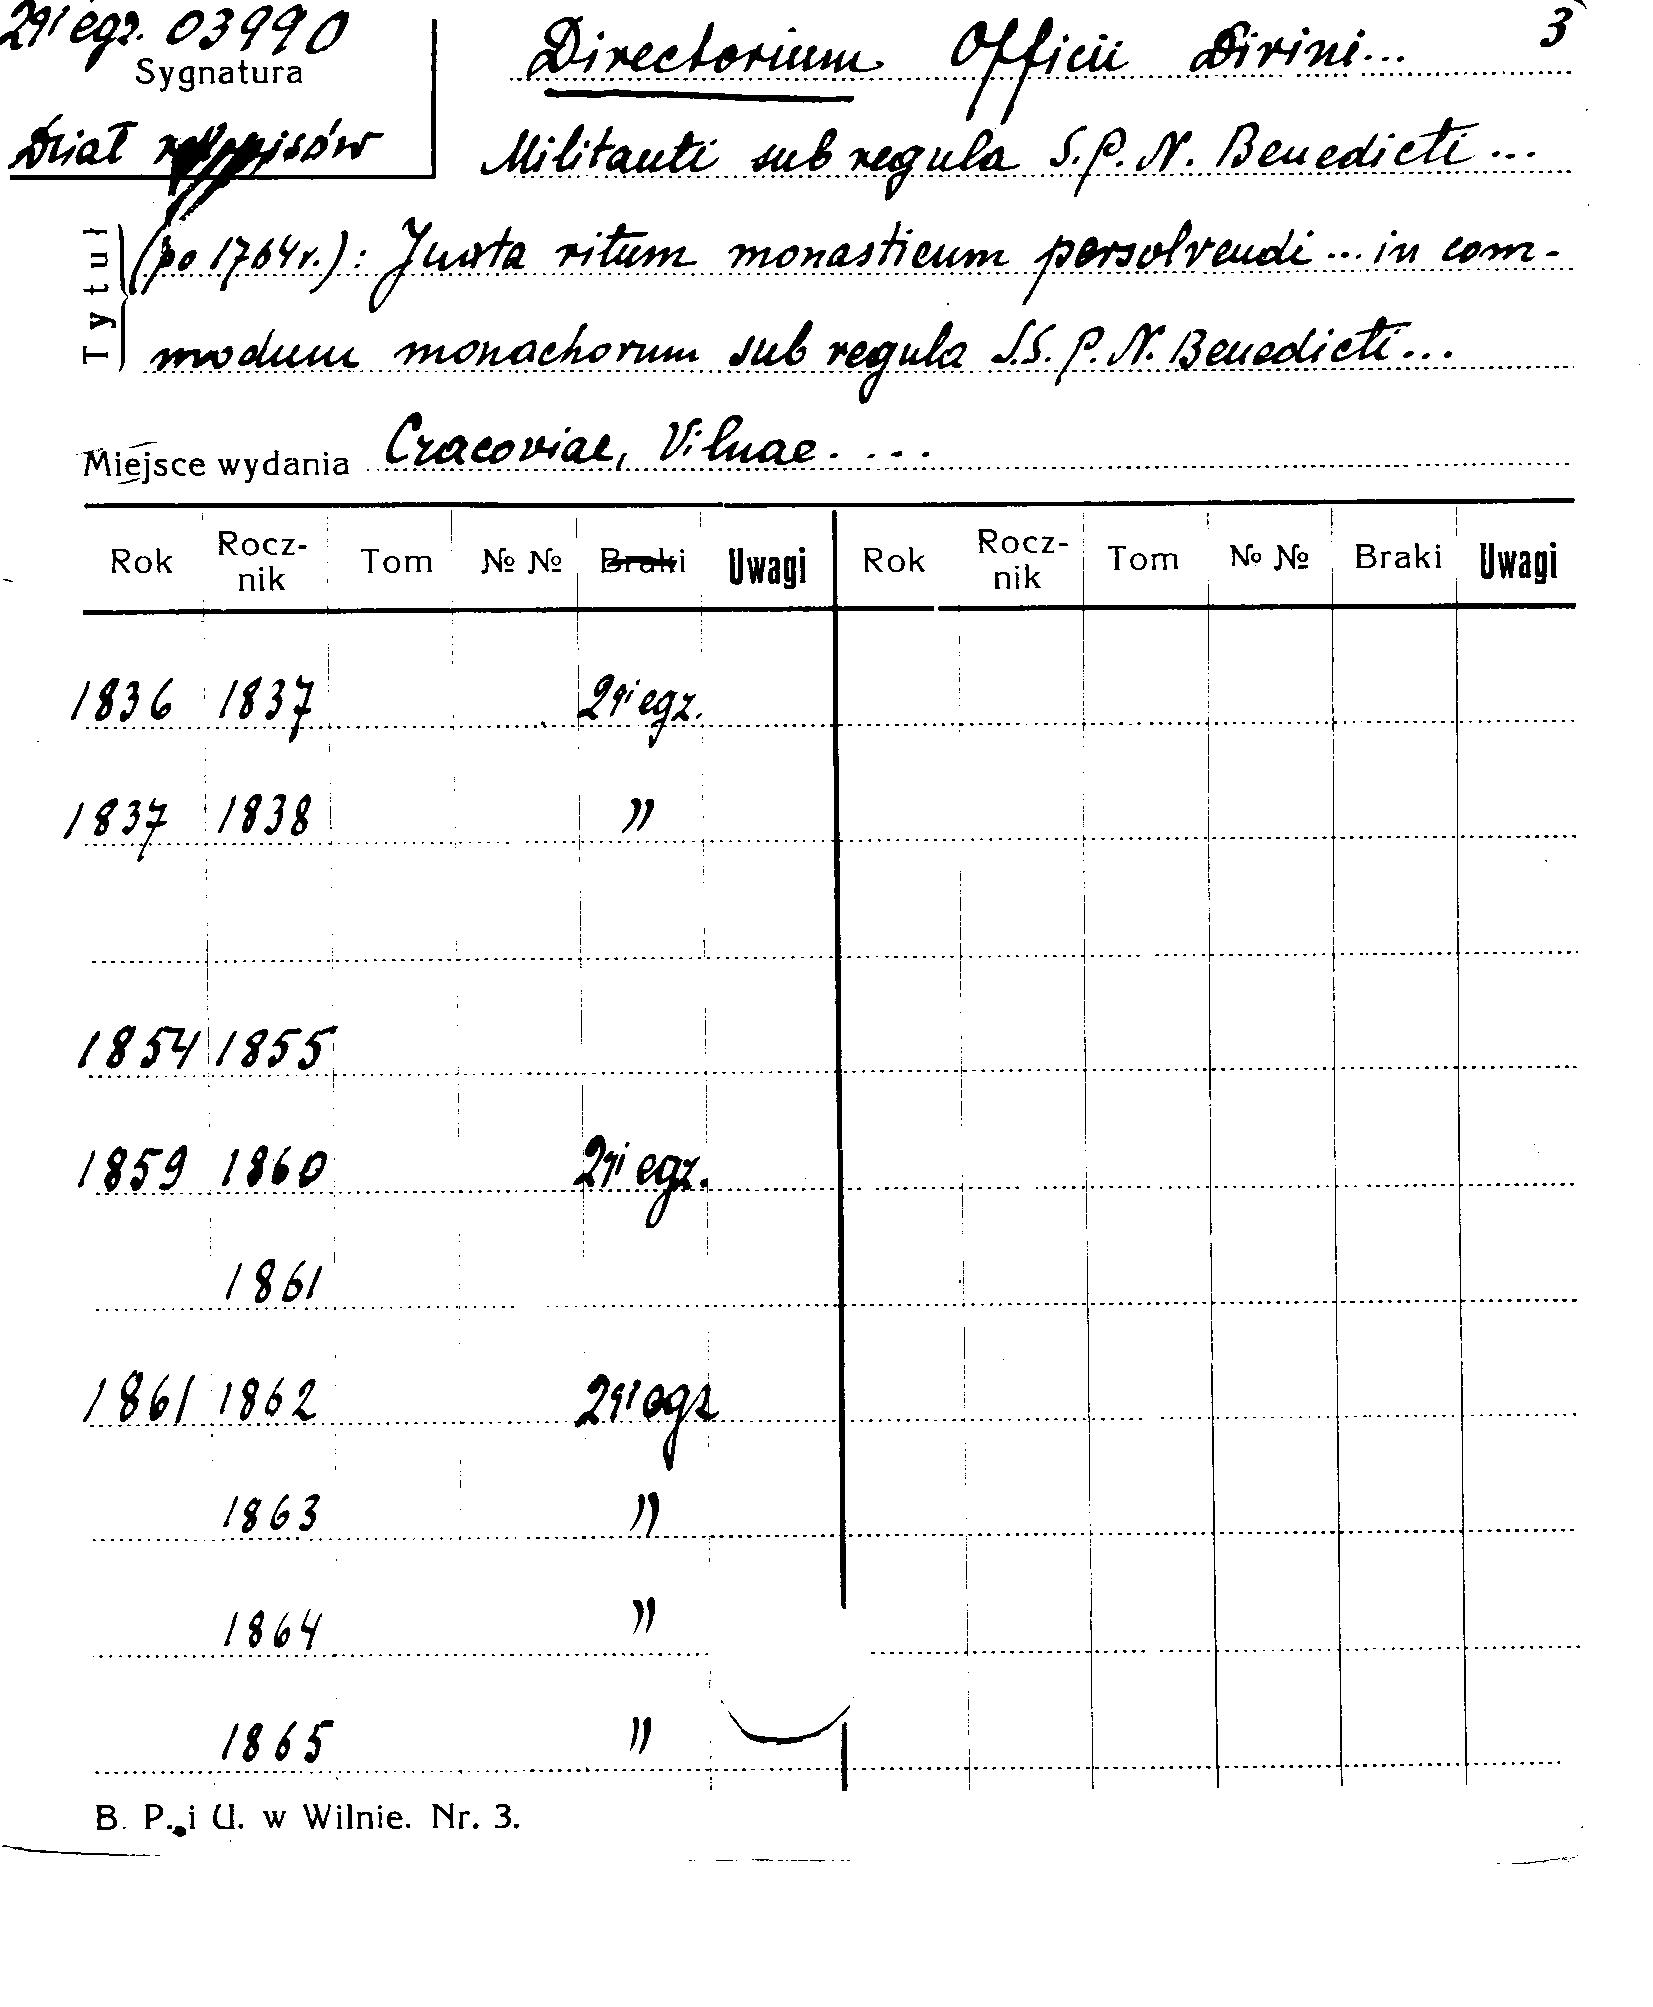 2gi egz. 03990
Sygnatura
Dział rękopisów
3
Directorium Officii Divini...
Militanti sub regula S. P. N. Benedicti ...
Tytuł
(po 1764r.): Juxta ritum monasticum persolvendi ... in com-
modum monachorum sub regula S.S. P. N. Benedicti...
Miejsce wydania Cracoviae, Vilnae. ...
Rok Rocz-nik Tom № № Braki Uwagi Rok Rocz-nik Tom № № Braki Uwagi
1836 1837 2gi egz.
1837 1838 "
1854 1855
1859 1860 2gi egz.
1861
1861 1862 2gi egz
1863 "
1864 "
1865 "
B. P. i U. w Wilnie. Nr. 3.